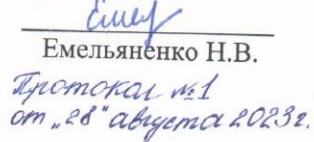 Емельяненко Н.В.
Протокол №1
от „28" августа 2023г.